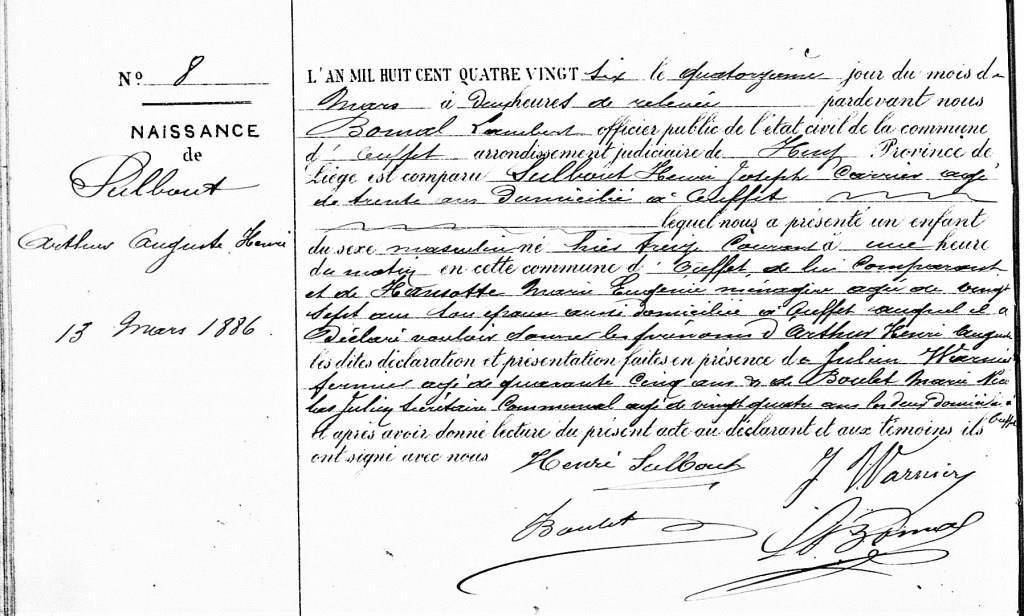 N° 8
NAISSANCE
de
Sulbout
Arthur Auguste Henri
13 Mars 1886.
L'AN MIL HUIT CENT QUATRE VINGT six le quatorzième jour du mois de
Mars à deux heures de relevée pardevant nous
Bomal Lambert officier public de l'état civil de la commune
d'Ouffet arrondissement judiciaire de Huy Province de
Liège est comparu Sulbout Henri Joseph Carrier agé
de trente ans domicilié à Ouffet
lequel nous a présenté un enfant
du sexe masculin né hier treize Courant à une heure
du matin en cette commune d'Ouffet, de lui Comparant
et de Hansotte Marie Eugénie ménagère agée de vingt
sept ans son épouse aussi domiciliée à Ouffet auquel il a
déclaré vouloir donner les prénoms d'Arthur Henri Auguste
les dites déclaration et présentation faites en présence de Julien Warnier
fermier agé de quarante cinq ans & de Boulet Marie Nico
las Julien Secrétaire Communal agé de vingt quatre ans les deux domiciliés à
Ouffet
et après avoir donné lecture du présent acte au déclarant et aux témoins ils
ont signé avec nous
Henri Sulbout
J Warnier
Boulet
L Bomal